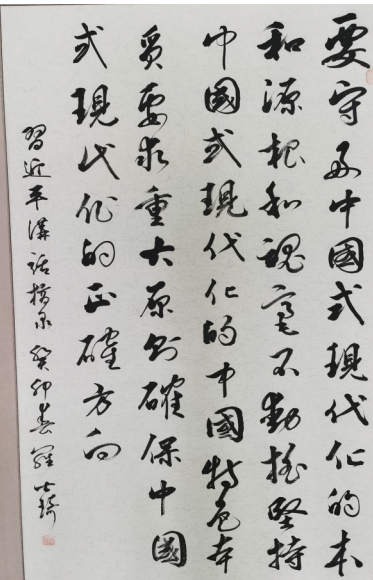 要守好中國式現代化的本
和源根和魂毫不動搖堅持
中國式現代化的中國特色本
質要求重大原則確保中國
式現代化的正確方向
習近平講話摘录癸卯春羅